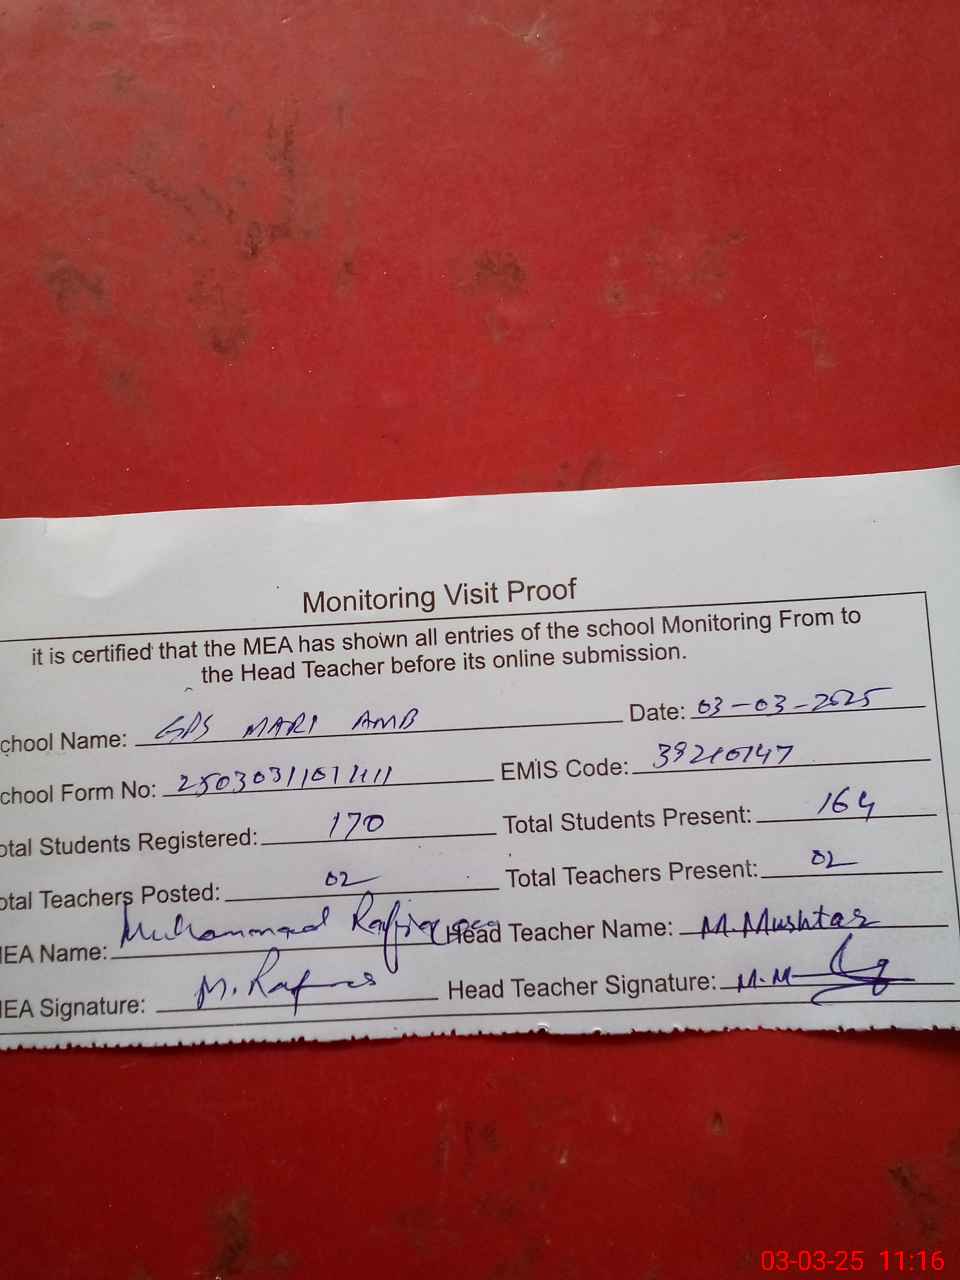 Monitoring Visit Proof
it is certified that the MEA has shown all entries of the school Monitoring From to
the Head Teacher before its online submission.
chool Name: GPS MARI AMB Date: 03-03-2025
chool Form No: EMIS Code: 38210147
otal Students Registered: 170 Total Students Present: 164
otal Teachers Posted: 02 Total Teachers Present: 02
IEA Name: Muhammad Head Teacher Name: M.Mushtaq
IEA Signature: M. Head Teacher Signature: M.M
03-03-25 11:16